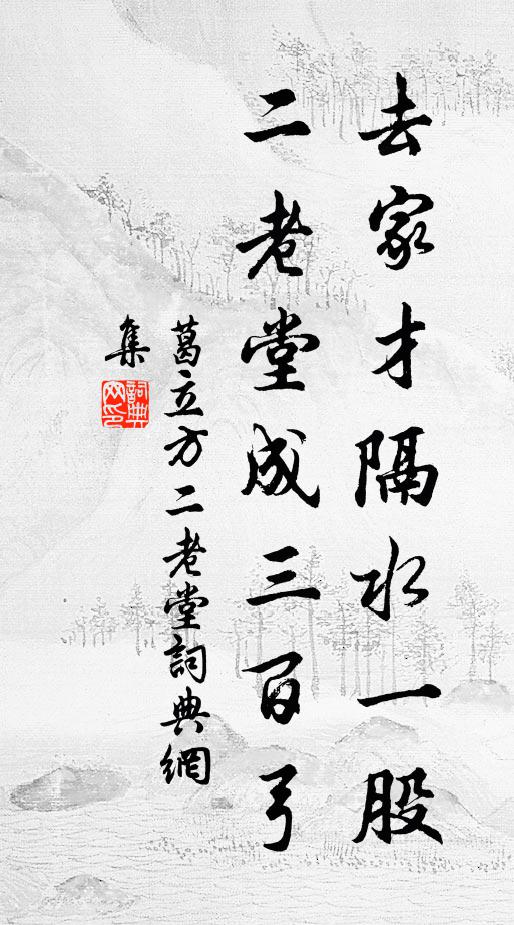 去家才隔水一股
二老堂成三百弓
葛立方二老堂詞典網
集
詞典網印